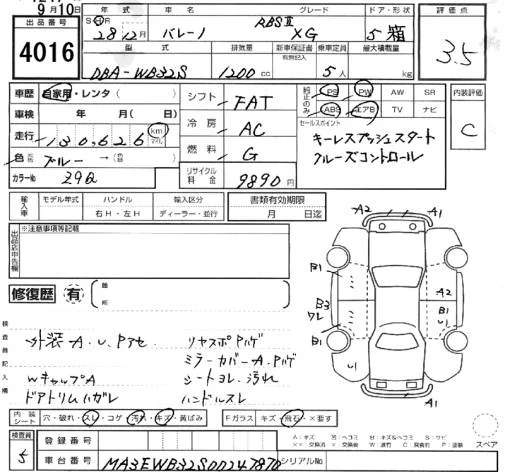 9月10日
出品番号
4016
年式
グレード
ドア・形状
評価点
S・H・R
28年12月 バレーノ
RBSⅡ
XG
5 箱
3.5
型式
排気量
新車保証書
有無記入
乗車定員
最大積載量
DBA-WB32S
1200cc
5人
kg
車歴 自家用・レンタ( )
シフト FAT
純正のみ
PS PW AW SR
ABS エアB TV ナビ
内装評価
C
車検 年 月( 日)
冷房 AC
セールスポイント
キーレスプッシュスタート
クルーズコントロール
走行 130,626 km
マイル
燃料 G
色 ブルー → (色替)
カラーNo. Z9Q
リサイクル料金 9890円
輸入車
モデル年式
ハンドル
右H・左H
輸入区分
ディーラー・並行
書類有効期限
月 日迄
出品店申告欄
※注意事項等記載
修復歴 有
検査員記入欄
外装A.U.Pアセ
WキャップA
ドアトリムハガレ
リヤスポPハゲ
ミラーカバーA.Pハゲ
シートヨレ.汚れ
ハンドルスレ
A2 A1
B1
A2
B3
ワレ
B1
U1
B1
U1
A2 A1
内装シート 穴・破れ・スレ・コゲ・汚れ・キズ・黄ばみ
Fガラス キズ・飛石・×要す
スペア
検査員
5
登録番号
車台番号 MA3EWB32S00247870
シリアルNo.